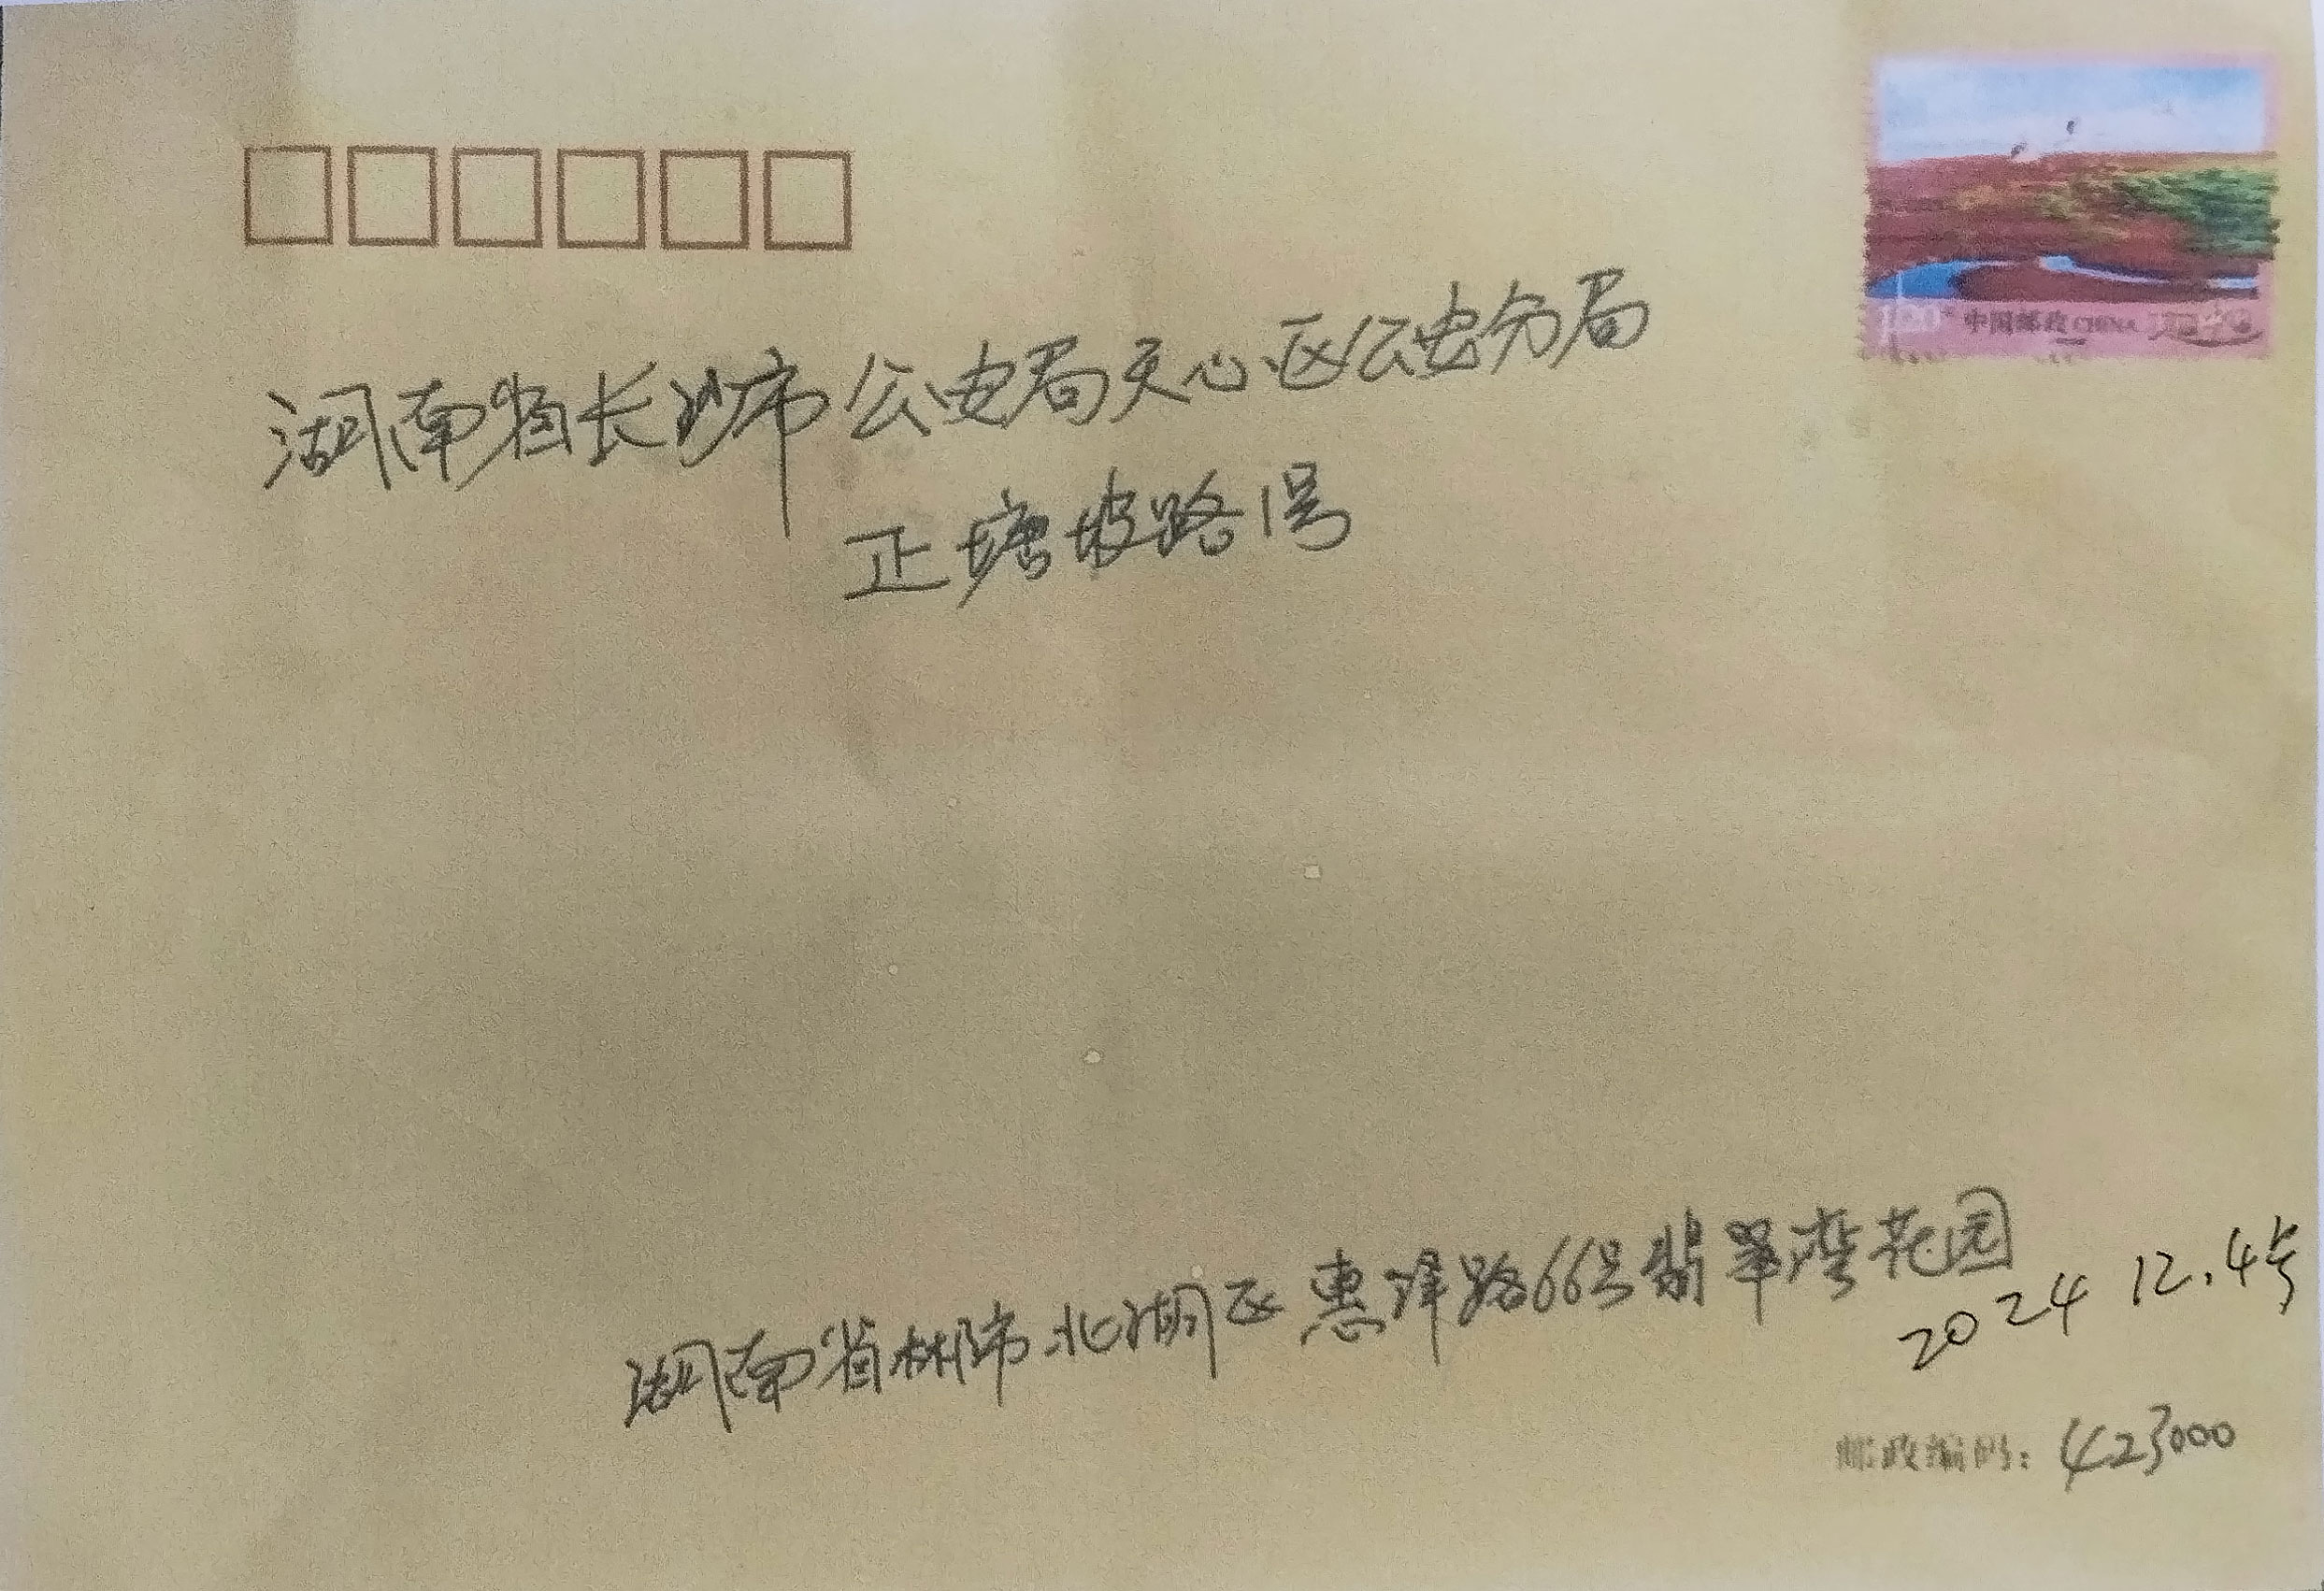 中国邮政 CHINA
湖南省长沙市公安局天心区公安分局
正塘坡路1号
湖南省郴市北湖区惠泽路66号翡翠湾花园
2024 12.4号
邮政编码: 423000